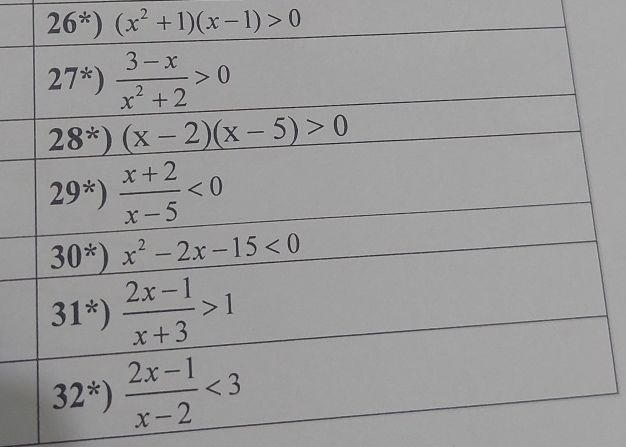 26*) (x² + 1)(x − 1) > 0
27*) \frac{3 − x}{x² + 2} > 0
28*) (x − 2)(x − 5) > 0
29*) \frac{x + 2}{x − 5} < 0
30*) x² − 2x − 15 < 0
31*) \frac{2x − 1}{x + 3} > 1
32*) \frac{2x − 1}{x − 2} < 3